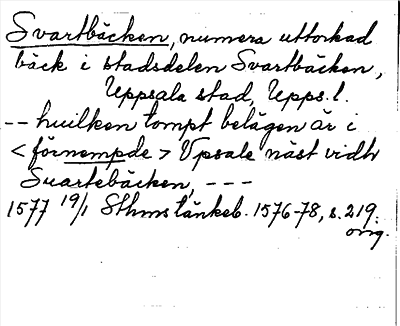 Svartbäcken, numera uttorkad
bäck i stadsdelen Svartbäcken,
Uppsala stad, Upps.l.
-- huilken tompt belägen är i
<förnempde> Vpsale näst vidh
Suartebäcken, ---
1577 19/1 Sthms tänkeb. 1576-78, s. 219.
orig.